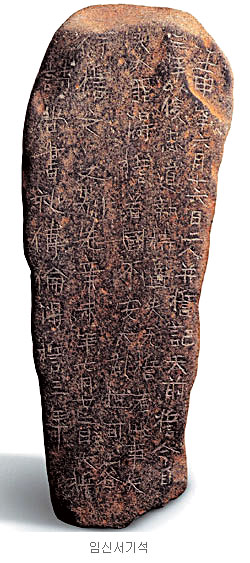 壬申年六月十六日二人幷誓記天前誓今自
三年以後忠道執持過失无誓若此事失
天大罪得誓若國不安大乱世可容
行誓之又別先辛未年七月廿二日大誓
詩尙書礼傳倫得誓三年
임신서기석